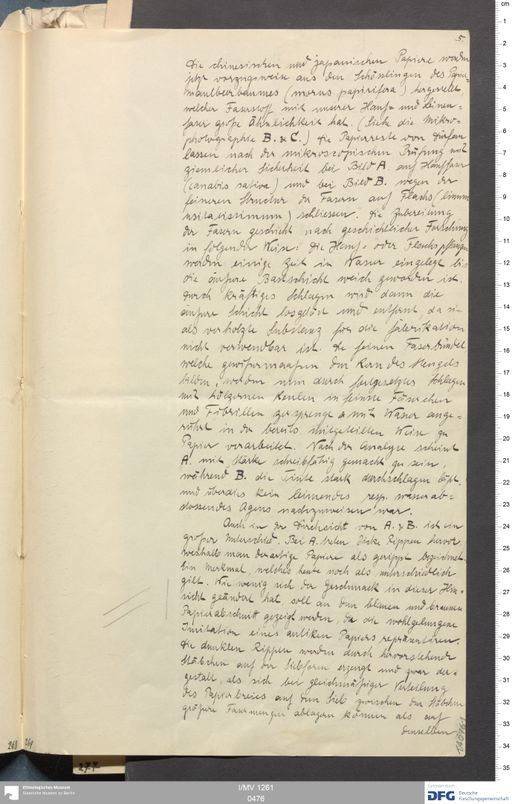 5
Die chinesischen und japanischen Papiere werden
jetzt vorzugsweise aus den Schösslingen des Papier
maulbeerbaumes (morus papirifera) hergestellt,
welcher Faserstoff mit unserer Hanf- und Leinen-
faser große Ähnlichkeit hat. (Siehe die Mikro-
photographie B. & C.) Die Papierreste von Turfan
lassen nach der mikroscopischen Prüfung mit
ziemlicher Sicherheit bei Bild A auf Hanffaser
(canabis sativa) und bei Bild B. wegen der
feineren Structur der Fasern auf Flachs (linum
usitatissimum) schliessen. Die Zubereitung
der Fasern geschieht nach geschichtlicher Forschung
in folgender Weise: Die Hanf- oder Flachspflanzen
werden einige Zeit in Wasser eingelegt bis
die äußere Bastschicht weich geworden ist.
Durch kräftiges Schlagen wird dann die
äußere Schicht losgelöst und entfernt da sie
als verholzte Substanz für die Fabrikation
nicht verwendbar ist. Die feinen Faserbündel
welche gewissermaßen den Kern des Stengels
bilden, werden nun durch fortgesetztes Schlagen
mit hölzernen Keulen in feinste Fäserchen
und Fibrillen zersprengt & mit Wasser ange-
rührt in der bereits mitgeteilten Weise zu
Papier verarbeitet. Nach der Analyse scheint
A. mit Stärke schreibfähig gemacht zu sein,
während B. die Tinte stark durchschlagen läßt,
und überdies kein leimendes resp. wasserab-
stossendes Agens nachzuweisen war.
Auch in der Durchsicht von A. & B. ist ein
großer Unterschied. Bei A. treten dicke Rippen hervor
weshalb man derartige Papiere als gerippt bezeichnet.
Ein Merkmal, welches heute noch als unterschiedlich
gilt. Wie wenig sich der Geschmack in dieser Hin-
sicht geändert hat, soll an dem blauen und braunen
Papierabschnitt gezeigt werden, da sie wohlgelungene
Imitation eines antiken Papiers repräsentieren.
Die dunklen Rippen werden durch hervorstehende
Stäbchen auf der Siebform erzeugt und zwar der-
gestalt, als sich bei gleichmäßiger Verteilung
des Papierbreies auf dem Sieb zwischen den Stäbchen
größere Fasermengen ablagern können als auf
denselben
268
269
274
Ethnologisches Museum
Staatliche Museen zu Berlin
I/MV 1261
0476
DFG Deutsche
Forschungsgemeinschaft